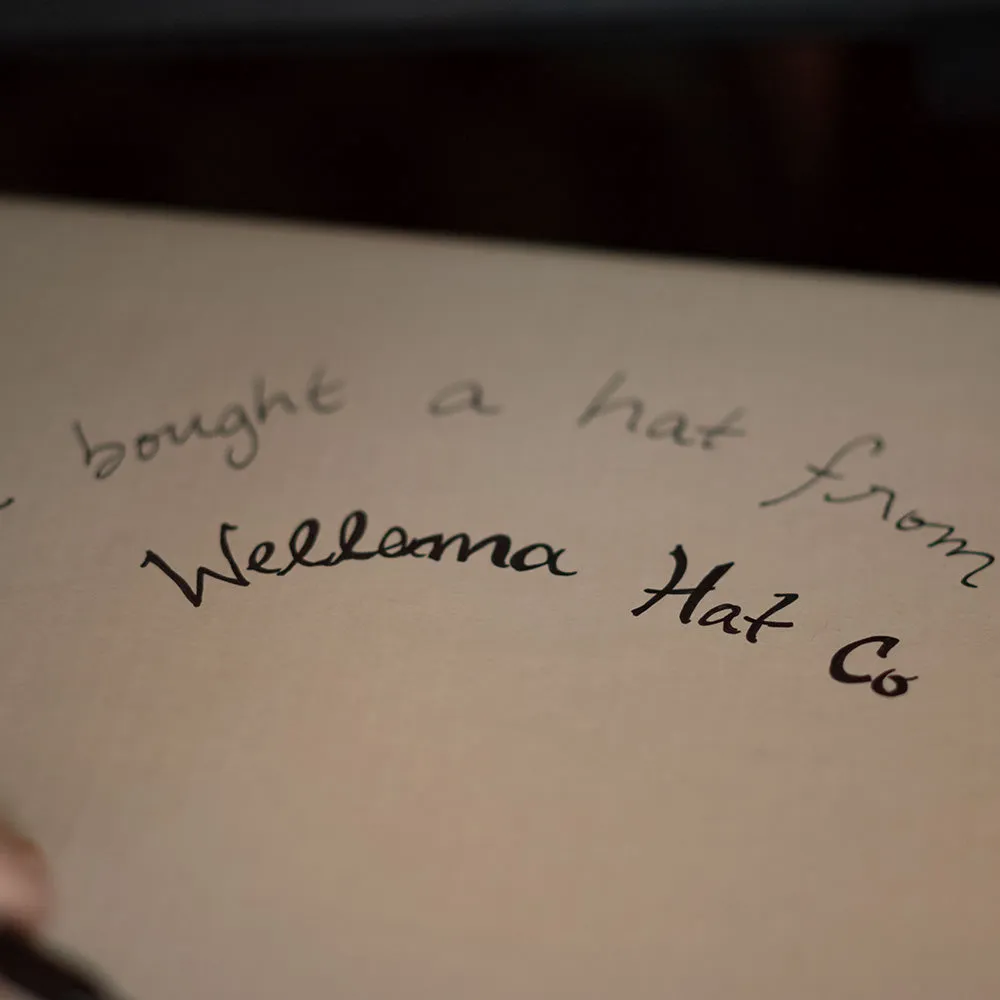 bought a hat from
Wellema Hat Co